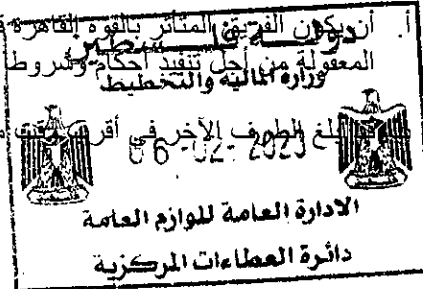 أ. أن يكون الفريق المتأثر بالقوة القاهرة
دولة فلسطين
المعقولة من أجل تنفيذ أحكام وشروط
وزارة المالية والتخطيط
الطرف الآخر في أقرب وقت
06-02-2023
الادارة العامة للوازم العامة
دائرة العطاءات المركزية